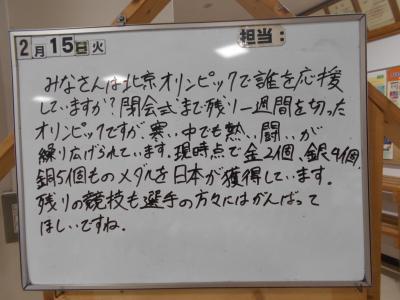 2月15日火
担当:
みなさんは北京オリンピックで誰を応援
していますか?閉会式まで残り一週間を切った
オリンピックですが、寒い中でも熱い闘いが
繰り広げられています。現時点で金2個、銀4個、
銅5個ものメダルを日本が獲得しています。
残りの競技も選手の方々にはがんばって
ほしいですね。